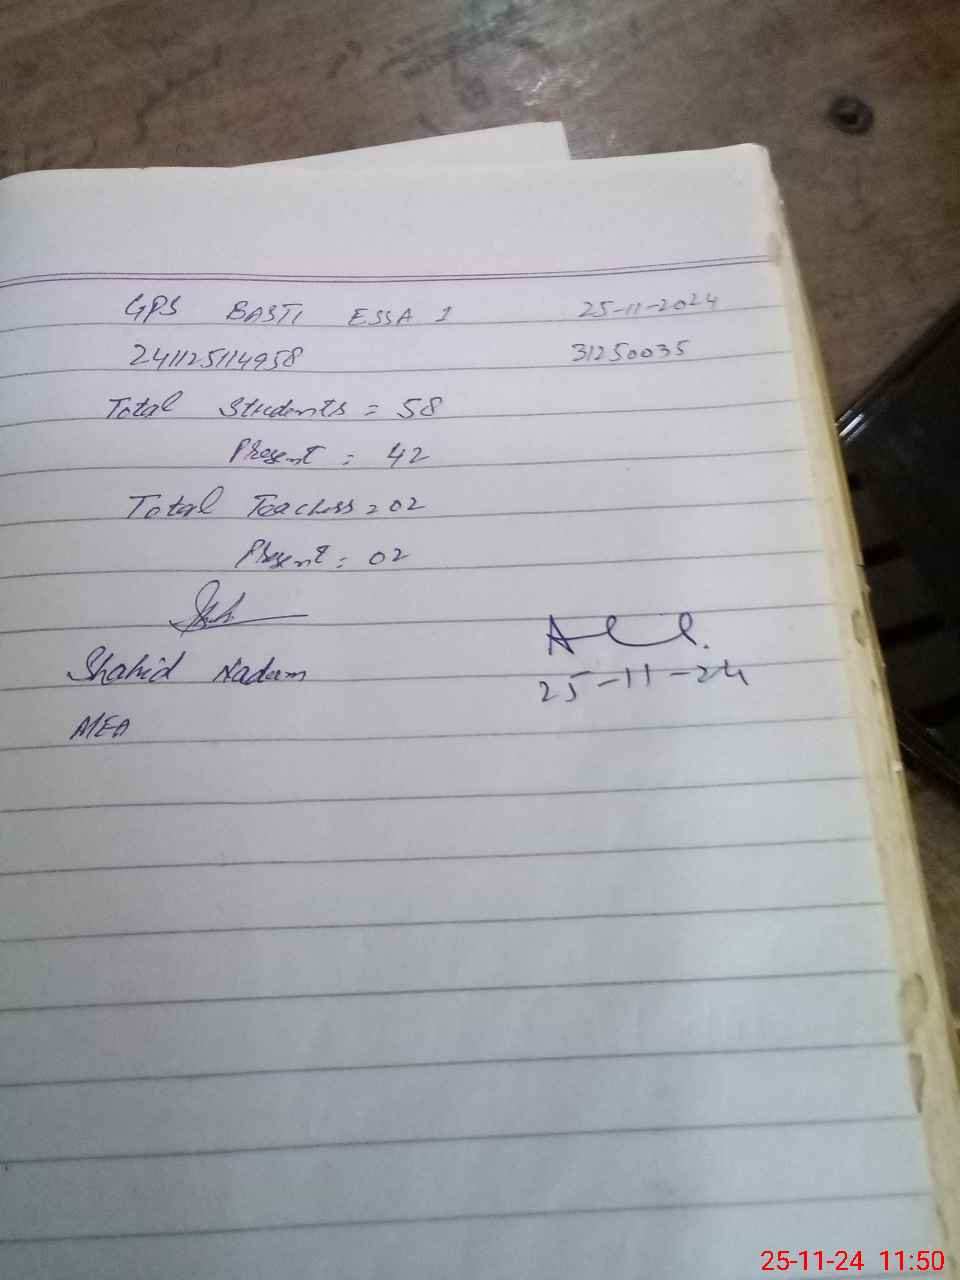 GPS BASTI ESSA 1 25-11-2024
241125114958 31250035
Total Students = 58
Present = 42
Total Teachers = 02
Present = 02
Shahid Nadeem
25-11-24
MEA
25-11-24 11:50